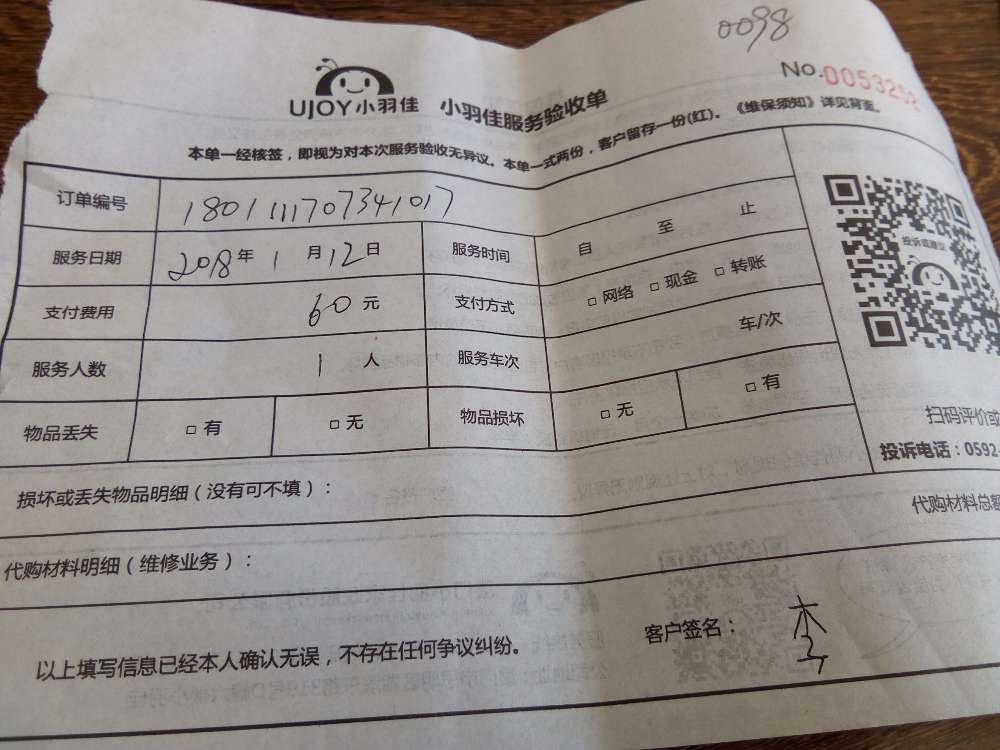 0098
No.0053252
UJOY小羽佳 小羽佳服务验收单
本单一经核签，即视为对本次服务验收无异议。本单一式两份，客户留存一份(红)。《维保须知》详见背面。
订单编号 180111170734​1017
服务日期 2018年1月12日 服务时间 自 至 止
支付费用 60元 支付方式 □网络 □现金 □转账
服务人数 1人 服务车次 车/次
物品丢失 □有 □无 物品损坏 □无 □有
投诉或建议
扫码评价或
投诉电话：0592-
损坏或丢失物品明细（没有可不填）：
代购材料总额
代购材料明细（维修业务）：
以上填写信息已经本人确认无误，不存在任何争议纠纷。
客户签名：李